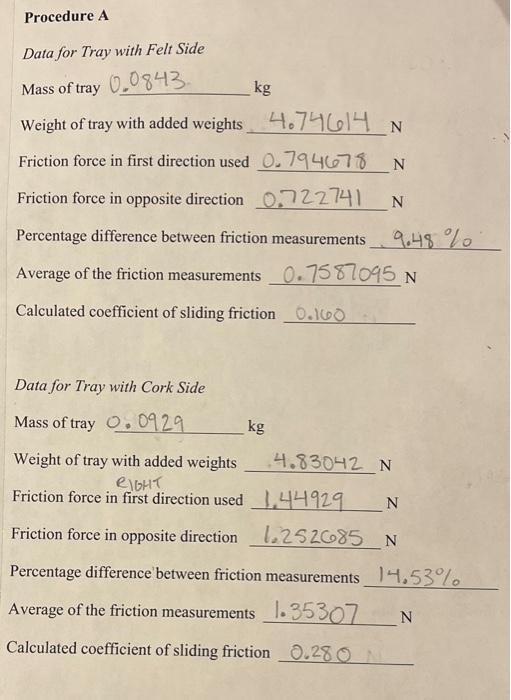 Procedure A
Data for Tray with Felt Side
Mass of tray 0.0843 kg
Weight of tray with added weights 4.74614 N
Friction force in first direction used 0.794678 N
Friction force in opposite direction 0.722741 N
Percentage difference between friction measurements 9.48 %
Average of the friction measurements 0.7587095 N
Calculated coefficient of sliding friction 0.160
Data for Tray with Cork Side
Mass of tray 0.0929 kg
Weight of tray with added weights 4.83042 N
RIGHT
Friction force in first direction used 1.44929 N
Friction force in opposite direction 1.252685 N
Percentage difference between friction measurements 14.53%
Average of the friction measurements 1.35307 N
Calculated coefficient of sliding friction 0.280